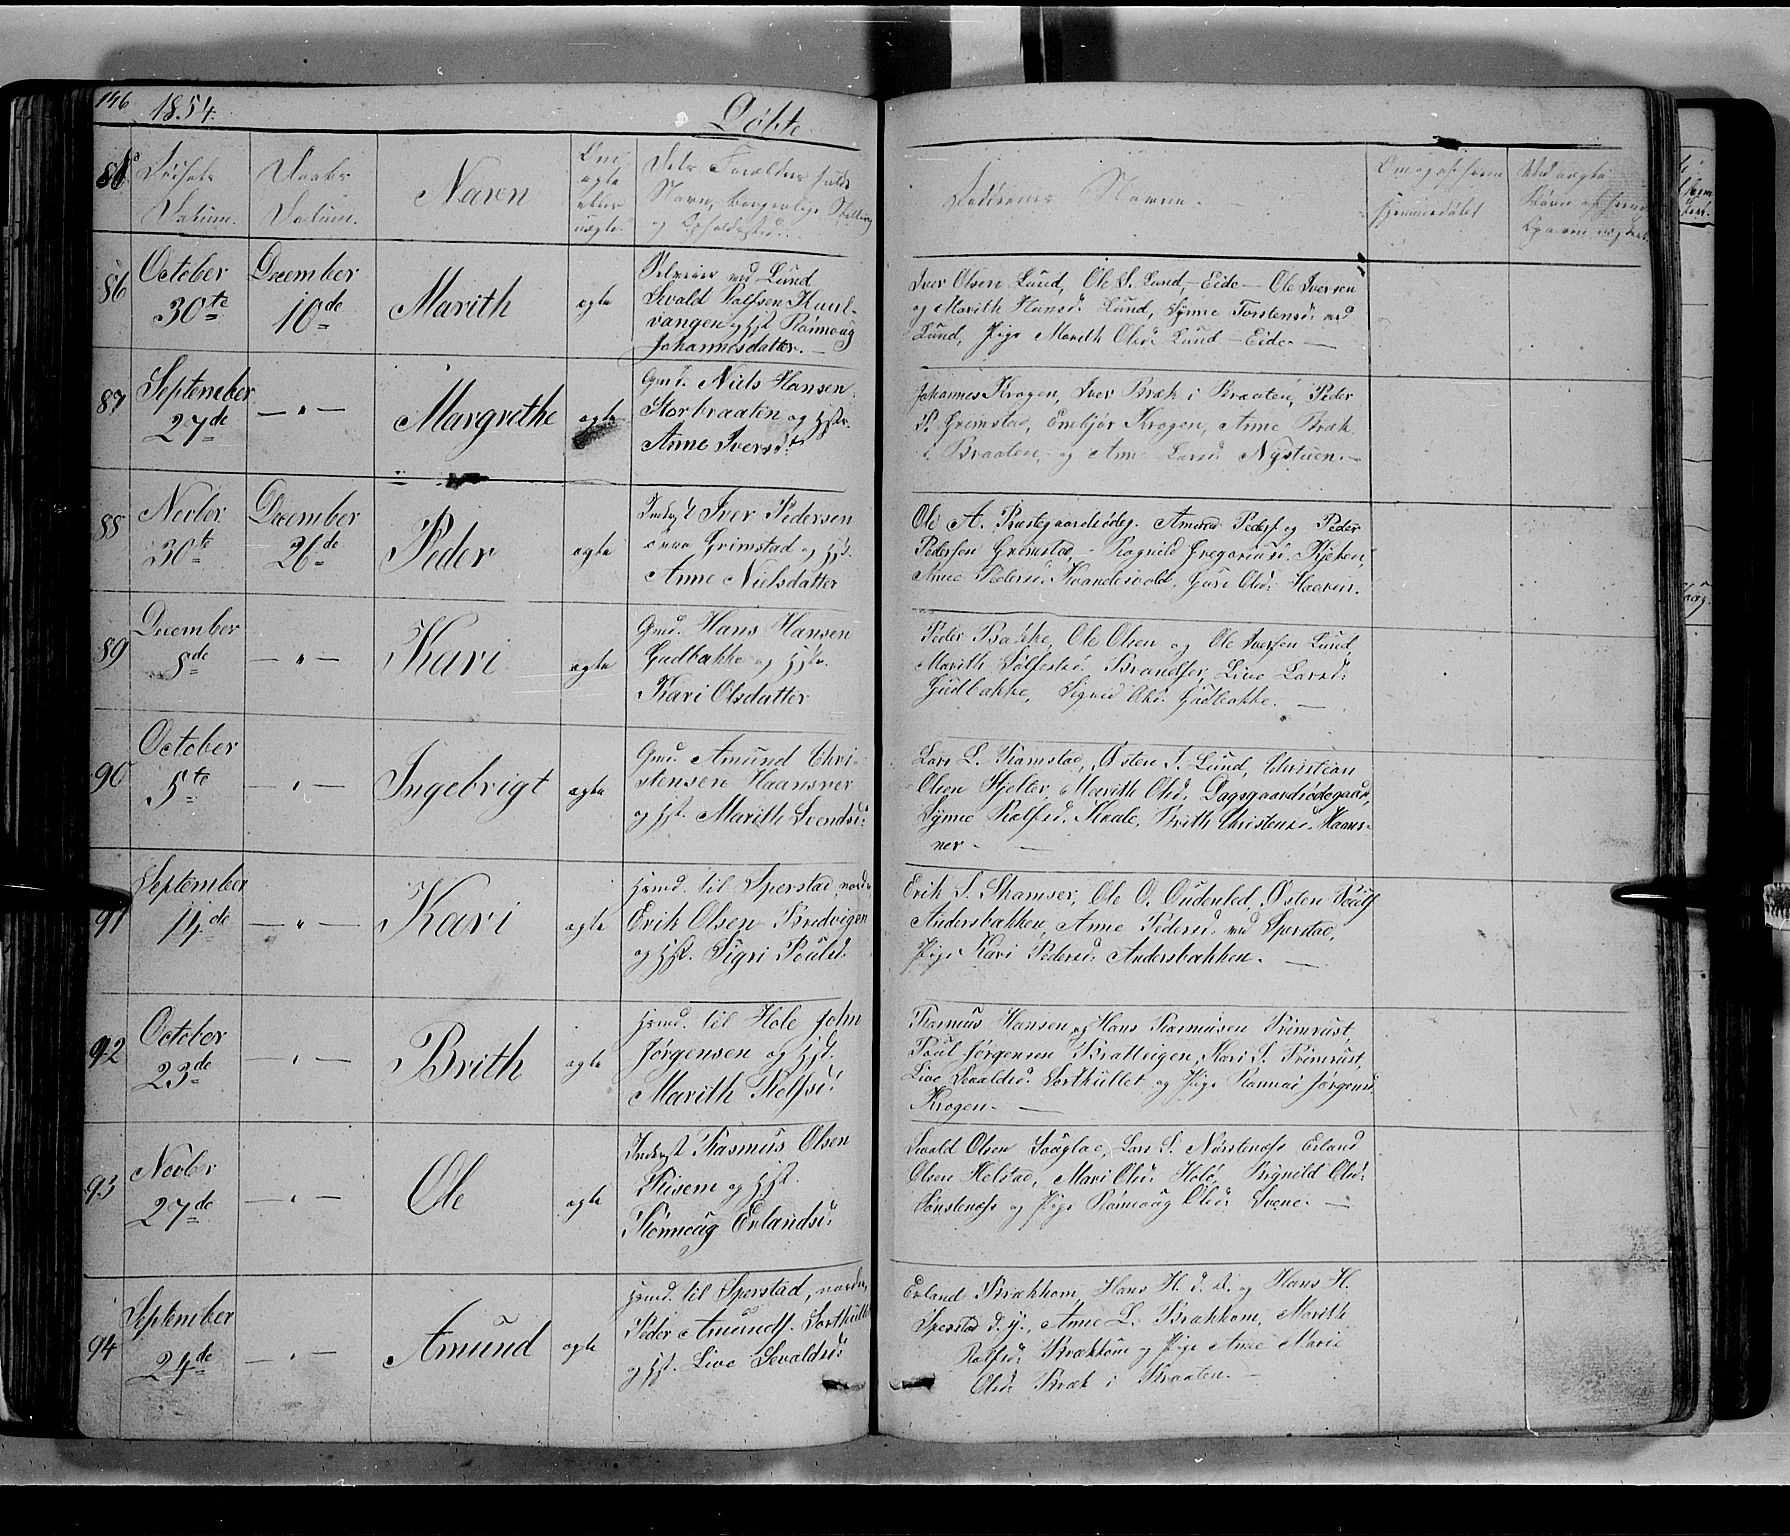 146 1854. Döbte
Födsels Datum.
Daabs Datum.
Navn
ægte eller uægte.
Forældres fulde Navn, borgerlige Stilling og Opholdssted.
Faddernes Navne.
86
October 30te
December 10de
Marith
ægte
Selveier ved Lund
Sevald Rolfsen Kvul-
vangen og Hst. Rönnoug
Johannesdatter.
Iver Olsen Lund, Ole S. Lund, Eide - Ole Iversen
og Marith Hansd: Lund, Synne Torstensd: ved
Lund, Pige Marith Olsd: Lund - Eide.
87
September 27de
— " —
Margrethe
ægte
Gmd. Niels Hansen
Storbraaten og Hstr.
Anne Iversd:
Johannes Krogen, Iver Bræk i Braaten, Peder
P. Grimstad, Embjør Krogen, Anne Bræk
i Braaten, og Anne Larsd: Nystuen.
88
Novbr 30te
December 26de
Peder
ægte
Inderst Iver Pedersen
Grimstad og Hst.
Anne Nielsdatter
Ole A. Præstegaardsödeg. Amund Peders. og Peder
Pedersen Grimstad, Ragnild Gregoriusd. Kjeken,
Anne Pedersd. Kvandesvold, Guri Olsd: Haaven.
89
December 8de
— " —
Kari
ægte
Gmd. Hans Hansen
Gudbakke og Hstr.
Kari Olsdatter
Peder Bakke, Ole Olsen og Ole Iversen Lund,
Marith Brandser, Live Larsd:
Gudbakke, Sigrid Olsd. Gudbakke.
90
October 5te
— " —
Ingebrigt
ægte
Gmd. Amund Chri-
stensen Haansner
og Hst. Marith Svendsd:
Lars L. Ramstad, Østen I. Lund, Christian
Olsen Hjeller, Marith Olsd: Dagsgaardsödegaard,
Synne Rolfsd. Kvale, Brith Christensd. Haans-
ner.
91
September 14de
— " —
Kari
ægte
Hsmd. til Sperstad, nordre
Erik Olsen Bredvigen
og Hst. Sigri Poulsd.
Erik S. Skamser, Ole O. Oudenled, Østen Poulss.
Andersbakken, Anne Pedersd: ved Sperstad,
Pige Kari Pedersd: Andersbakken.
92
October 23de
— " —
Brith
ægte
Hsmd. til Hole John
Jørgensen og Hst.
Marith Rolfsd:
Rasmus Hansen og Hans Rasmusen Trimrust,
Poul Jørgensen Brattvigen, Kari S. Trimrust,
Live Sevaldsd: Sorthullet og Pige Rannei Jørgensd.
Krogen.
93
Novbr 27de
— " —
Ole
ægte
Inderst Rasmus Olsen
og Hst.
Rönnoug Erlandsd:
Sevald Olsen Lars S. Nørstenæss Erland
Olsen Helstad, Mari Olsd: Hole, Rignild Olsd:
og Pige Rönnoug Olsd: Svene.
94
September 24de
— " —
Amund
ægte
Hsmd. til Sperstad, nordre,
Peder Amunds. Sorthullet
og Hst. Live Sevaldsd:
Erland Brækkom, Hans H. d. E. og Hans H.
Sperstad d. y., Anne L. Brækkom, Marith
Rolfsd: Brækkom og Pige Anne Marie
Olsd: Bræk i Braaten.